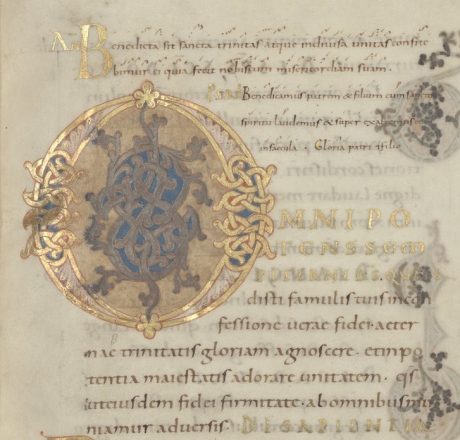 AN Benedicta sit sancta trinitas atque indiuisa unitas confite
bimur ei quia fecit nobiscum misericordiam suam.
Benedicamus patrem & filium cum sancto
spiritu laudemus & super exaltemus eum
in saecula. Gloria patri & filio
OMNIPO
TENS SEM
PITERNE DS. QUI DE
disti famulis tuis in con
fessione uerae fidei. aeter
nae trinitatis gloriam agnoscere. et in po
tentia maiestatis adorare unitatem. qs
ut eiusdem fidei firmitate. ab omnibus mu
niamur aduersis. DS APIENTIA